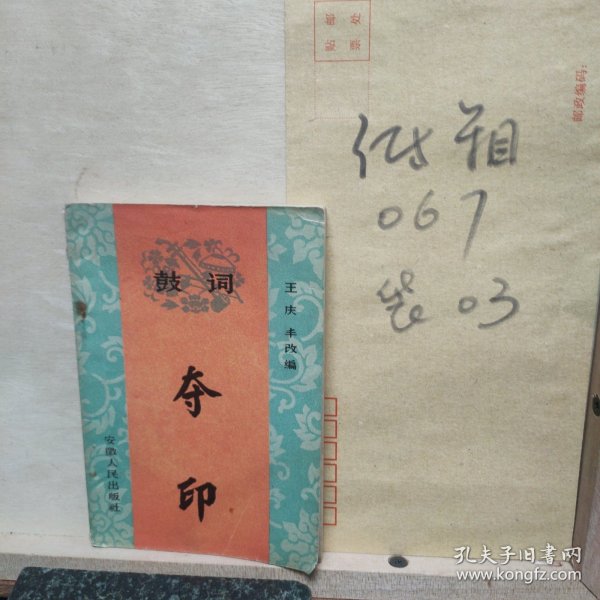 鼓词
夺印
王庆丰改编
安徽人民出版社
贴邮
票处
邮政编码：
067
袋03
孔夫子旧书网
www.kongfz.com